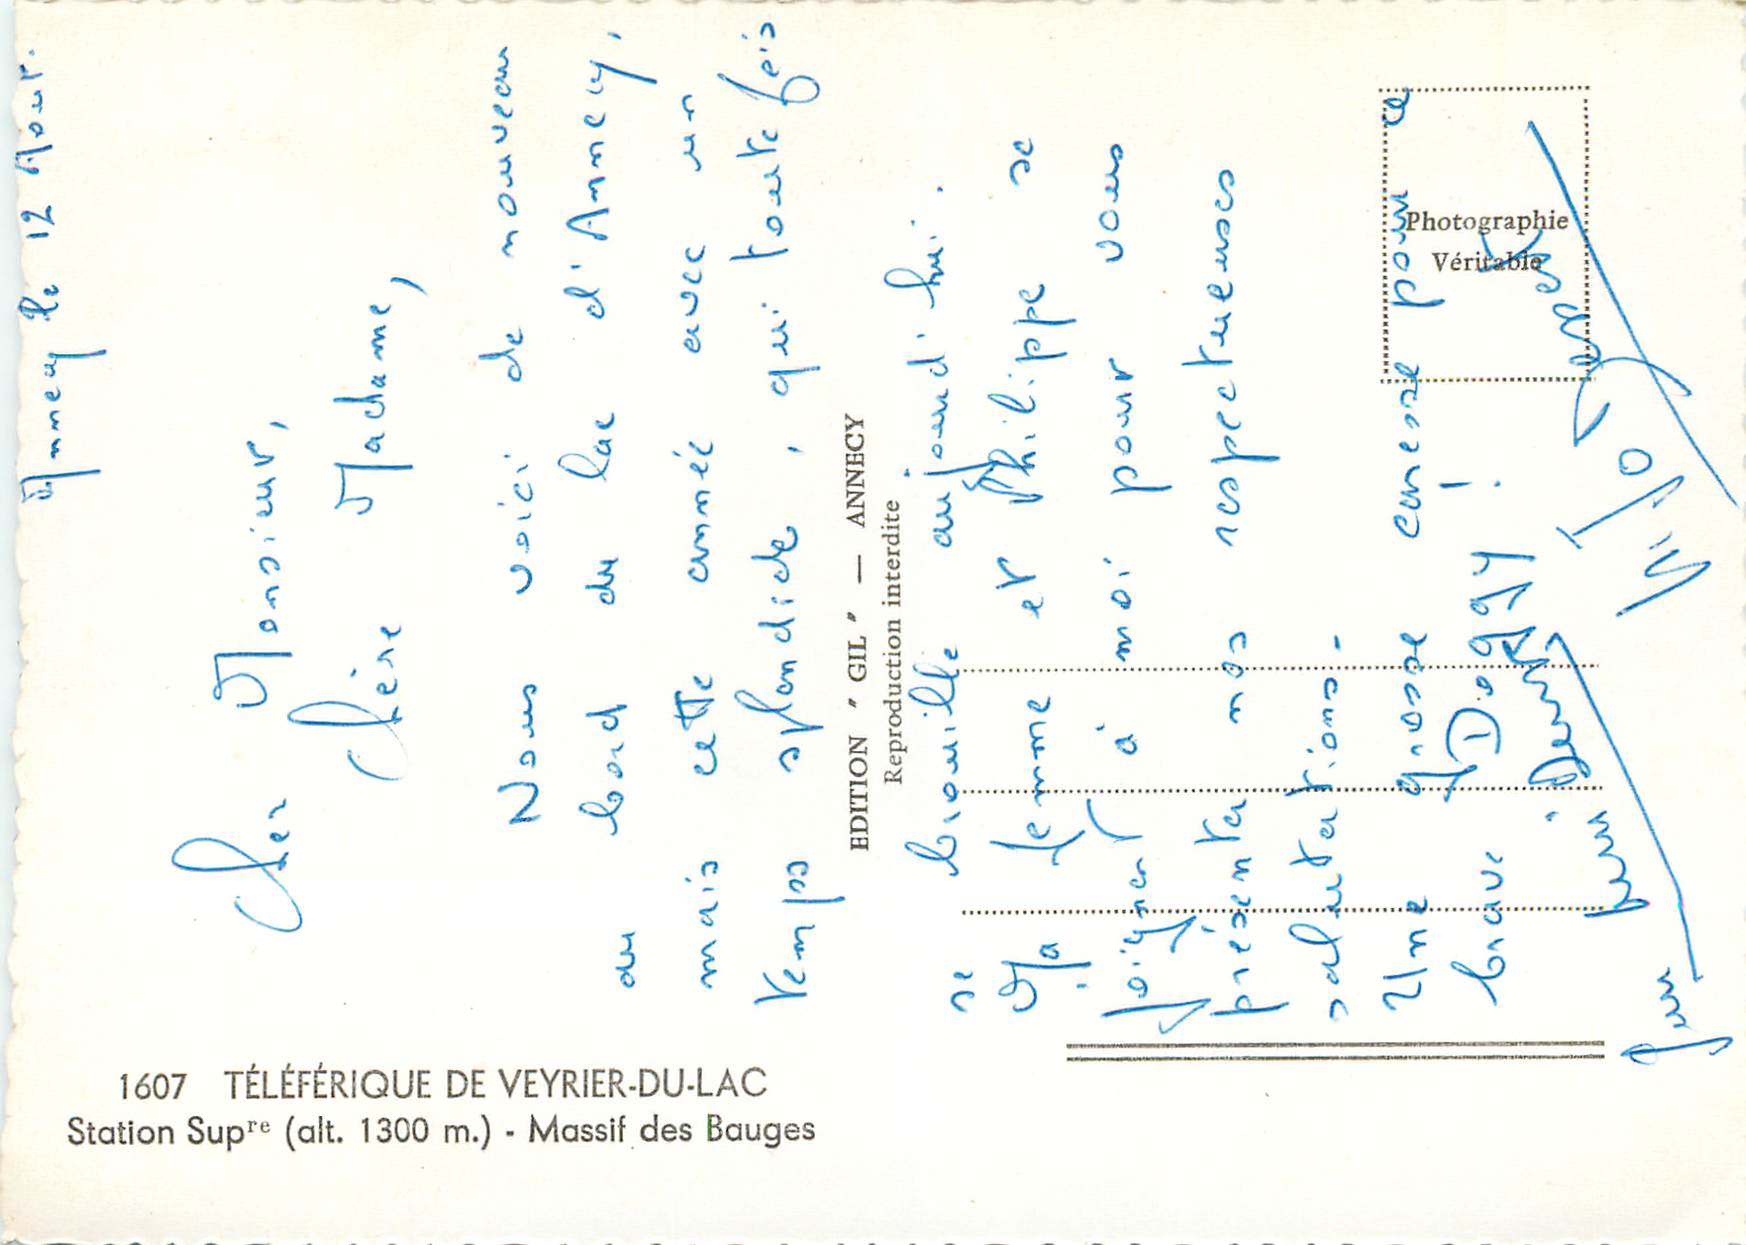 Annecy le 12 Août.
Cher Monsieur,
Chère Madame,
Nous voici de nouveau
au bord du lac d'Annecy,
mais cette année avec un
temps splendide, qui toute fois
se brouille aujourd'hui.
Ma femme et Philippe se
joignent à moi pour vous
présenter nos respectueuses
salutations.
Une grosse caresse pour ce
brave "Doggy"!
EDITION "GIL" — ANNECY
Reproduction interdite
Photographie
Véritable
1607 TÉLÉFÉRIQUE DE VEYRIER-DU-LAC
Station Supre (alt. 1300 m.) - Massif des Bauges